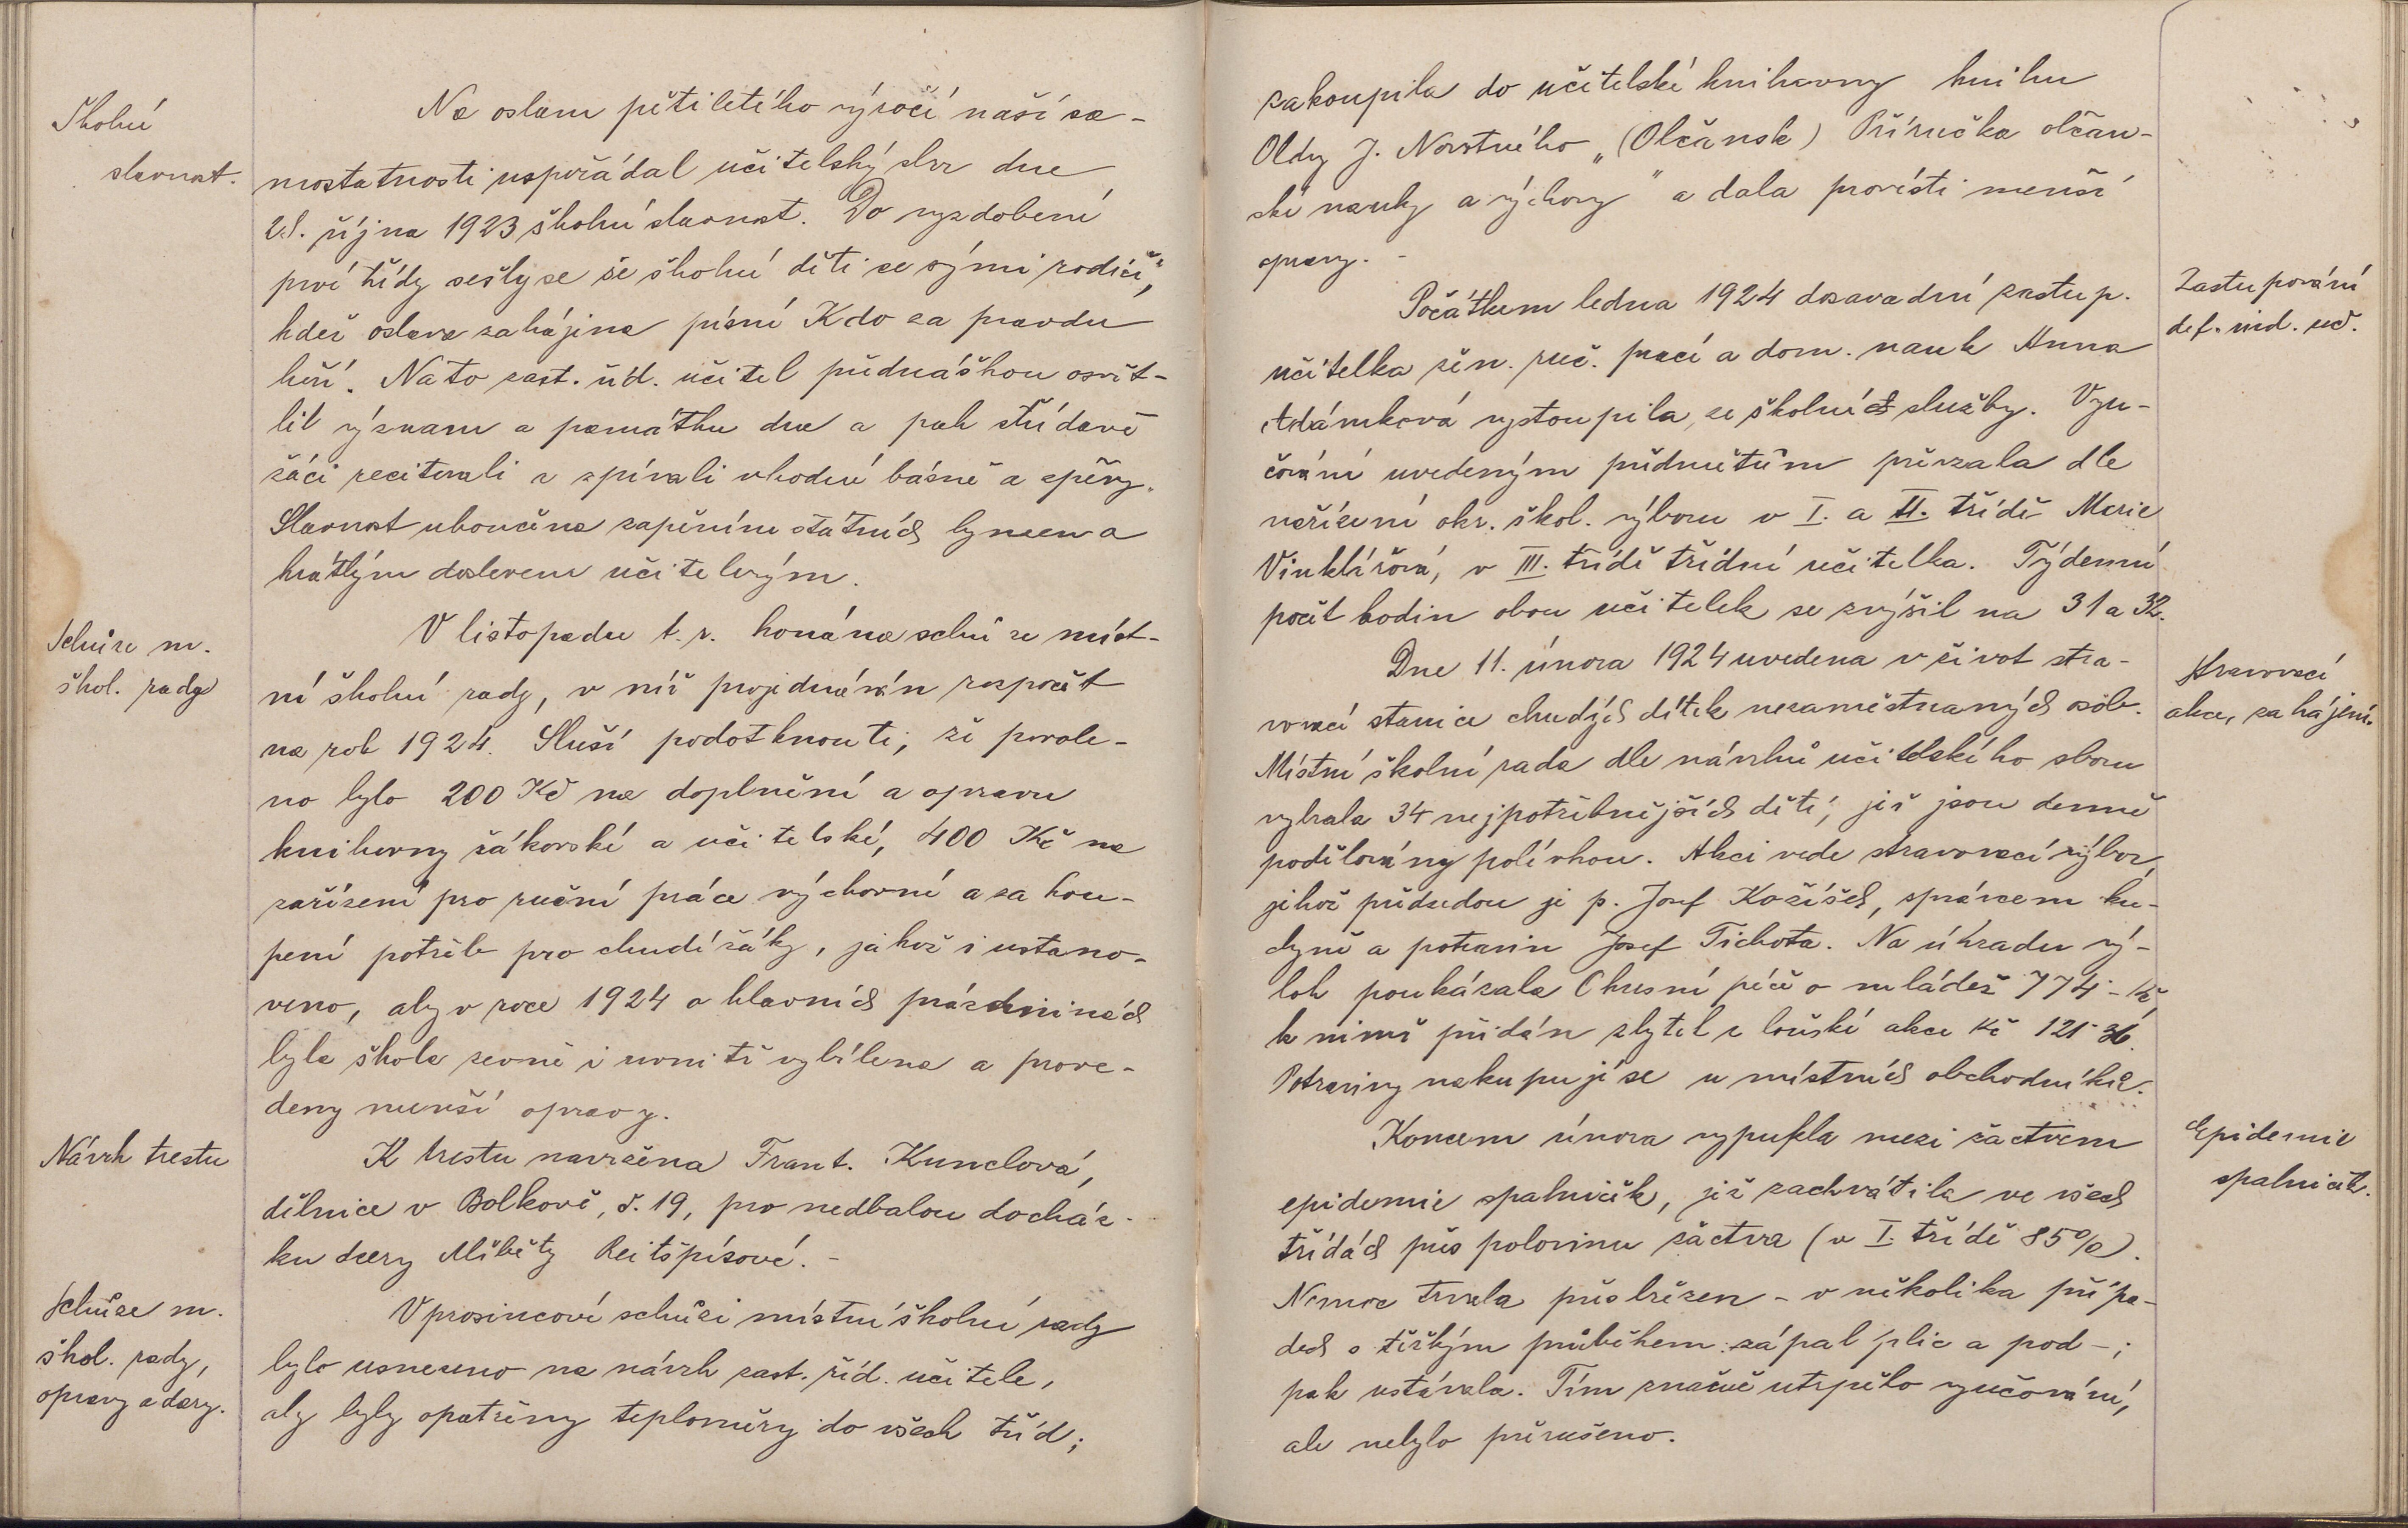 Školní
slavnost.
Na oslavu pětiletého výročí naší sa-
mostatnosti uspořádal učitelský sbor dne
28. října 1923 školní slavnost. Do vyzdobené
prvé třídy sešly se še školní děti se svými rodiči,
kdež oslava zahájena písní Kdo za pravdu
hoří. Nato zast. říd. učitel přednáškou osvět-
lil význam a památku dne a pak střídavě
žáci recitovali a zpívali vhodné básně a zpěvy.
Slavnost ukončena zapěním státních hymen a
krátkým doslovem učitelovým.
Schůze m.
škol. rady
V listopadu t. r. konána schůze míst-
ní školní rady, v níž projednáván rozpočet
na rok 1924. Sluší podotknouti, že povole-
no bylo 200 Kč na doplnění a opravu
knihovny žákovské a učitelské, 400 Kč na
zařízení pro ruční práce výchovné a za kou-
pení potřeb pro chudé žáky, jakož i ustano-
veno, aby v roce 1924 o hlavních prázdninách
byla škola zevně i uvnitř vybílena a prove-
deny menší opravy.
Návrh trestu
K trestu navržena Frant. Kunclová,
dělnice v Bolkově, č. 19, pro nedbalou docház-
ku dcery Alžběty Reitšpísové. -
Schůze m.
škol. rady,
opravy a dary.
V prosincové schůzi místní školní rady
bylo usneseno na návrh zast. říd. učitele,
aby byly opatřeny teploměry do všech tříd;
zakoupila do učitelské knihovny knihu
Oldy J. Novotného „(Olčansk) Příručka občan-
ské nauky a výchovy" a dala provésti menší
opravy. -
Zastupování
def. ind. uč.
Počátkem ledna 1924 dosavadní zastup.
učitelka žen. ruč. prací a dom. nauk Anna
Adámková vystoupila ze školních služby. Vyu-
čování uvedeným předmětům převzala dle
nařízení okr. škol. výboru v I. a II. třídě Marie
Vinklářová, v III. třídě třídní učitelka. Týdenní
počet hodin obou učitelek se zvýšil na 31 a 32.
Stravovací
akce, zahájení.
Dne 11. února 1924 uvedena v život stra-
vovací stanice chudých dítek nezaměstnaných osob.
Místní školní rada dle návrhů učitelského sboru
vybrala 34 nejpotřebnějších dětí, jež jsou denně
podělovány polévkou. Akci vede stravovací výbor,
jehož předsedou je p. Josef Kožíšek, správcem ku-
chyně a potravin Josef Tichota. Na úhradu vý-
loh poukázala Okresní péče o mládež 774·- Kč,
k nimž přidán zbytek z loňské akce Kč 121·36.
Potraviny nakupují se u místních obchodníků.
Epidemie
spalniček.
Koncem února vypukla mezi žactvem
epidemie spalniček, jež zachvátila ve všech
třídách přes polovinu žactva (v I. třídě 85%).
Nemoc trvala přes březen - v několika přípa-
dech s těžkým průběhem: zápal plic a pod -;
pak ustávala. Tím značně utrpělo vyučování,
ale nebylo přerušeno.